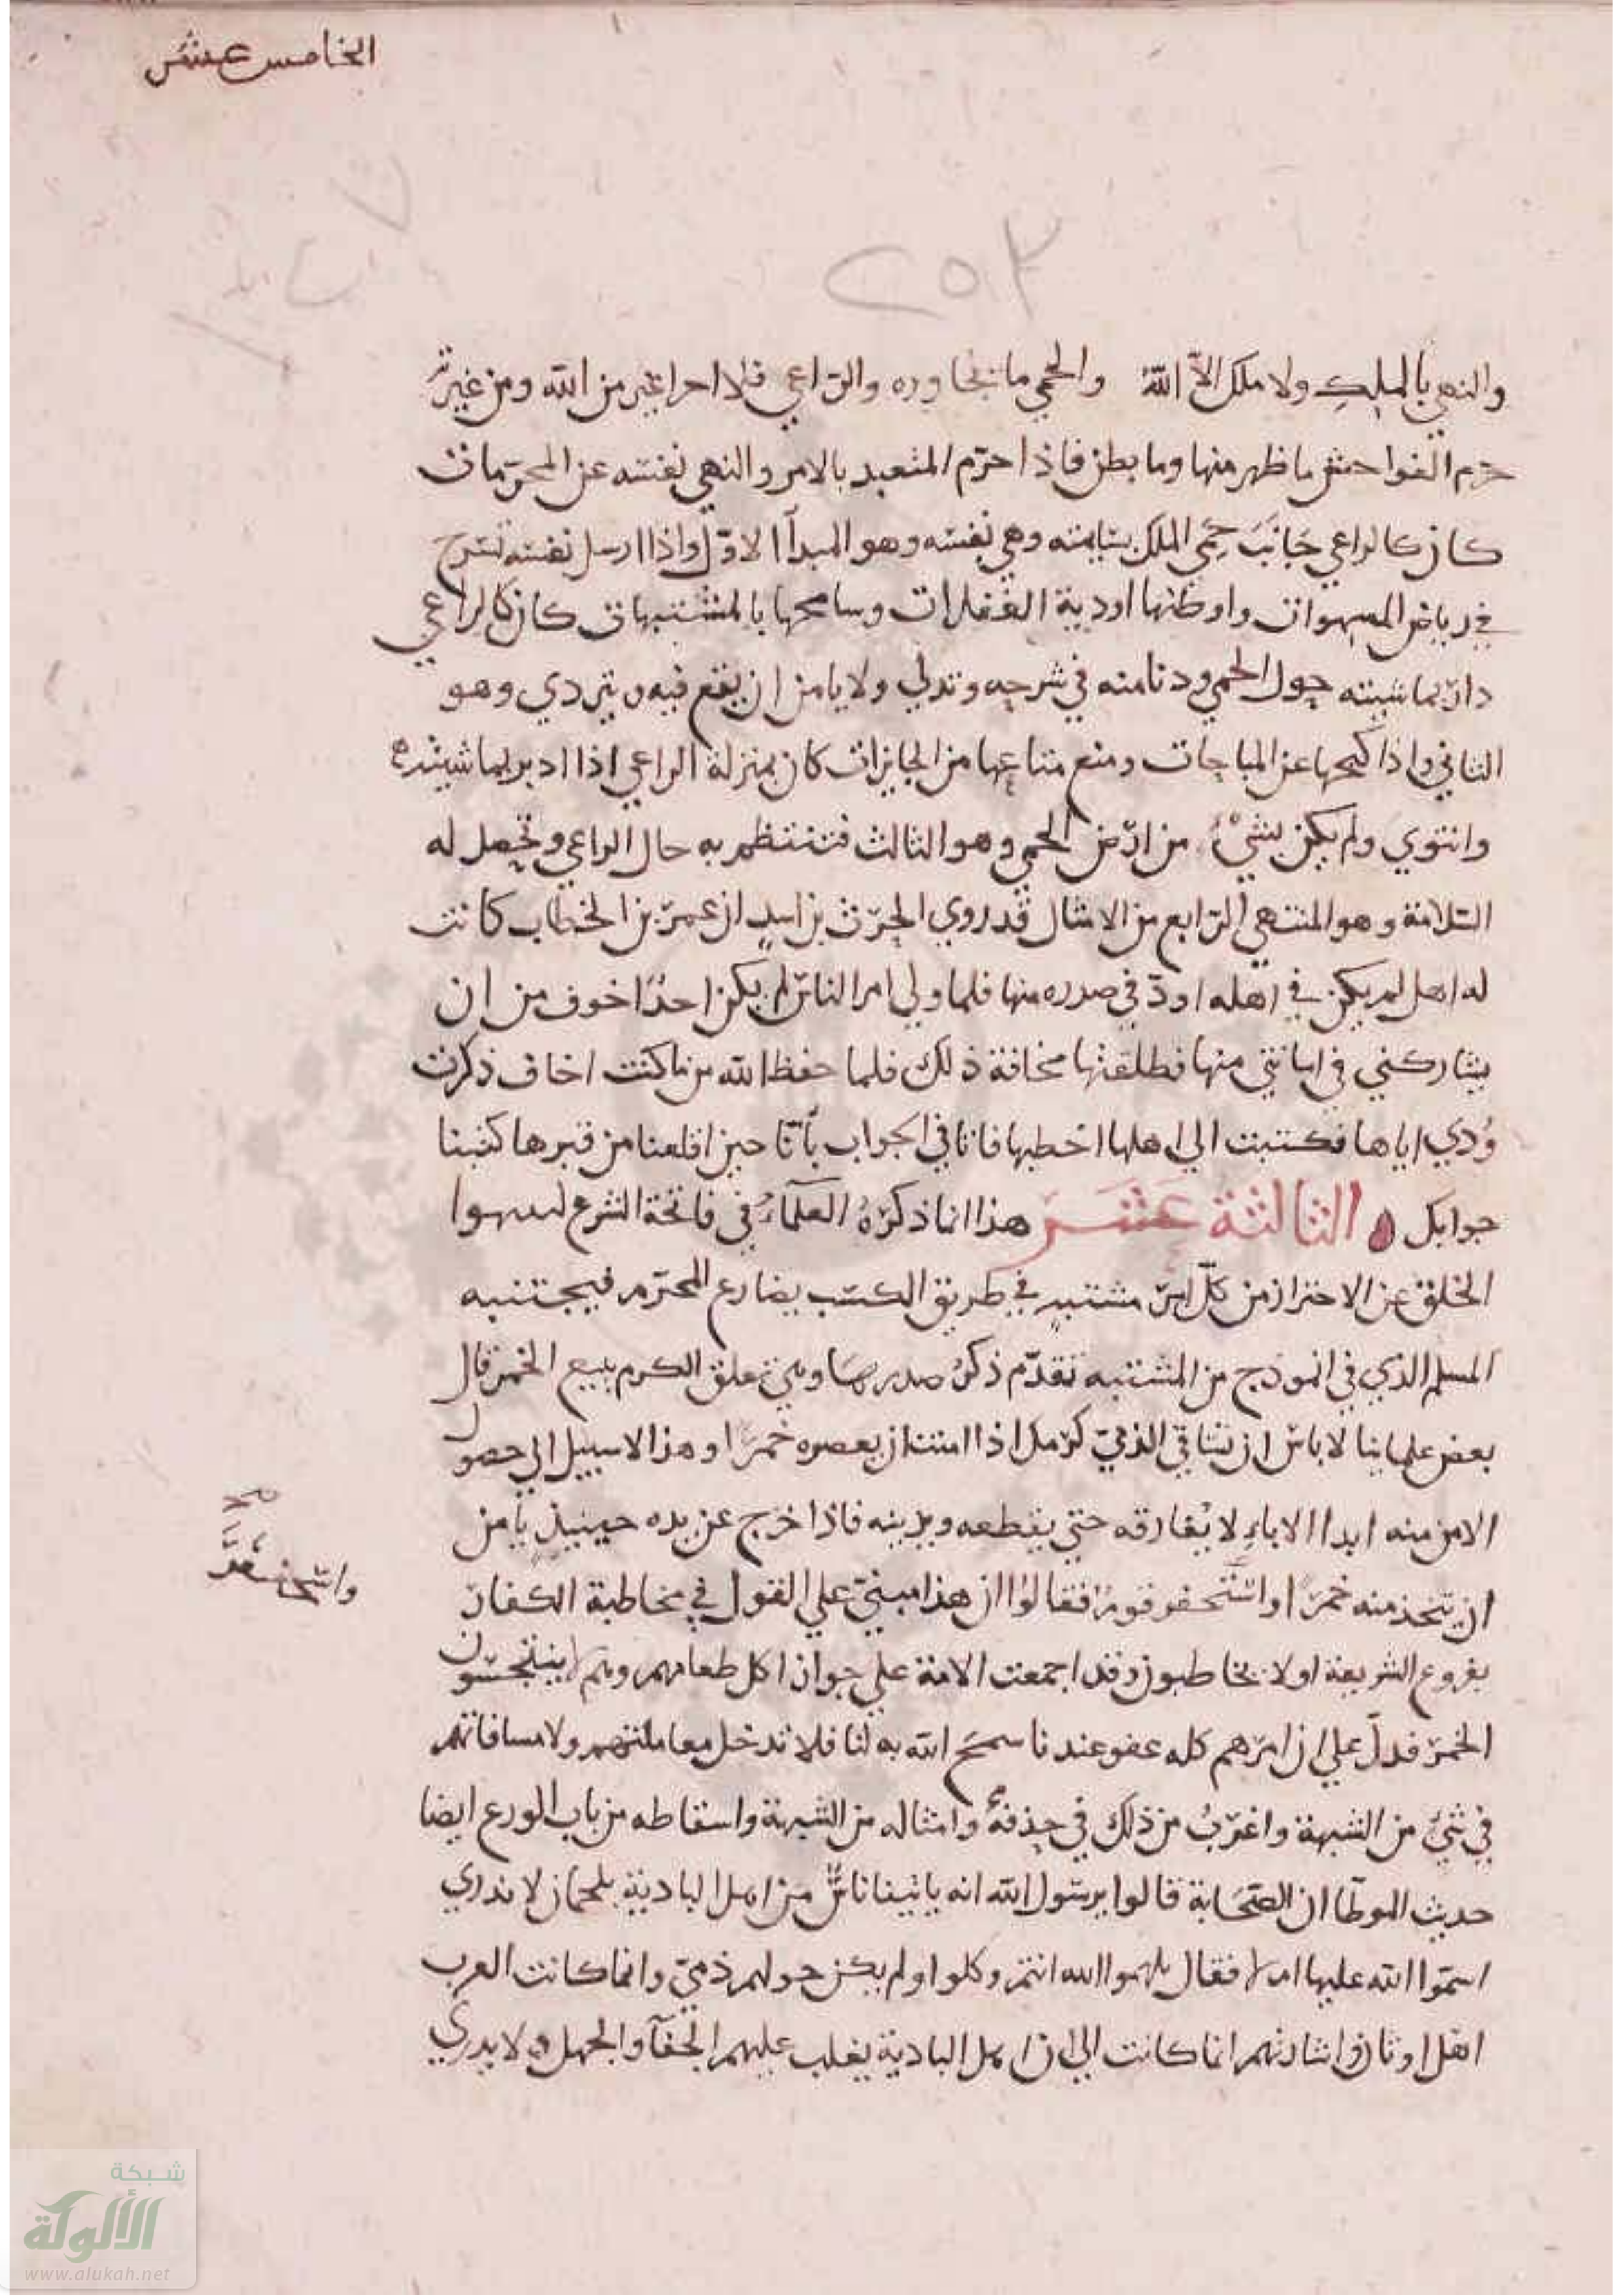 الخامس عشر
٢٥٣
والنهي بالملك ولا ملك الا الله والحمي ما يجاوره والراعي فلا احد اغير من الله ومن غيرته
حرم الفواحش ما ظهر منها وما بطن فاذا حرم المتعبد بالامر والنهي نفسه عن المحرمات
كان كالراعي جانب حمي الملك بسايمته وهي نفسه وهو المبدا الاول واذا ارسل نفسه تسرح
في رياض الشهوات واوطنها اودية الغفلات وسامحها بالمشتبهات كان كالراعي
دار بماشيته حول الحمي ودنا منه في شرجه وتدلي ولا يامن ان يقع فيه ويتردي وهو
الثاني واذا كبحها عن المباحات ومنع متاعها من الجايزات كان بمنزلة الراعي اذا ادبر بماشيته
وانتوي ولم يكن لشيء من ارض الحمي وهو الثالث فتنتظم به حال الراعي وتحصل له
السلامة وهو المنتهي الرابع من الامثال قد روي الحرث بن اسد ان عمر بن الخطاب كانت
له اهل لم يكن في اهله اود في صدره منها فلما ولي امر الناس لم يكن احدا خوف من ان
يشاركني في امانتي منها فطلقتها مخافة ذلك فلما حفظ الله من ما كنت اخاف ذكرت
ودي اياها فكتبت الي اهلها اخطبها فاتا في الجواب بانا حين اقلعنا من قبرها كتبنا
جوابكم الثالثة عشر هذا انما ذكره العلماء في فاتحة الشرع
الخلق عن الاحتراز من كل امر مشتبه في طريق الكسب يضارع المحرم فيجتنبه
المسلم الذي في انموذج من المشتبه تقدم ذكر صدرها ومن تعلق الكرم ببيع الخمر قال
بعض علماينا لا باس ان تساقي الذمي كرمك اذا امنت ان يعصره خمرا وهذا لا سبيل الي حصول
الامن منه ابدا الا باء لا يفارقه حتي يقطعه ويزببه فاذا خرج عن يده حينيذ يامن
ان يتخذ منه خمرا واستحقر قوم فقالوا ان هذا مبني علي القول في مخاطبة الكفار
واستحقر
بفروع الشريعة او لا يخاطبون وقد اجمعت الامة علي جواز اكل طعامهم وهم لا يستنجسون
الخمر فدل علي ان امرهم كله عفو عندنا سمح الله به لنا فلا تدخل معاملتهم ولا مساقاتهم
في شيء من الشبهة واغرب من ذلك في حذفه وامثاله من الشبهة واسقاطه من باب الورع ايضا
حديث الموطا ان الصحابة قالوا يرسول الله انه ياتينا ناس من اهل البادية بلحمان لا ندري
اسموا الله عليها ام لا فقال سموا الله انتم وكلوا ولم يكن حولهم ذمي وانما كانت العرب
اهل اوثان واشارتهم انما كانت الي ان اهل البادية يغلب عليهم الجفا والجهل ولا يدري
شبكة
الألوكة
www.alukah.net